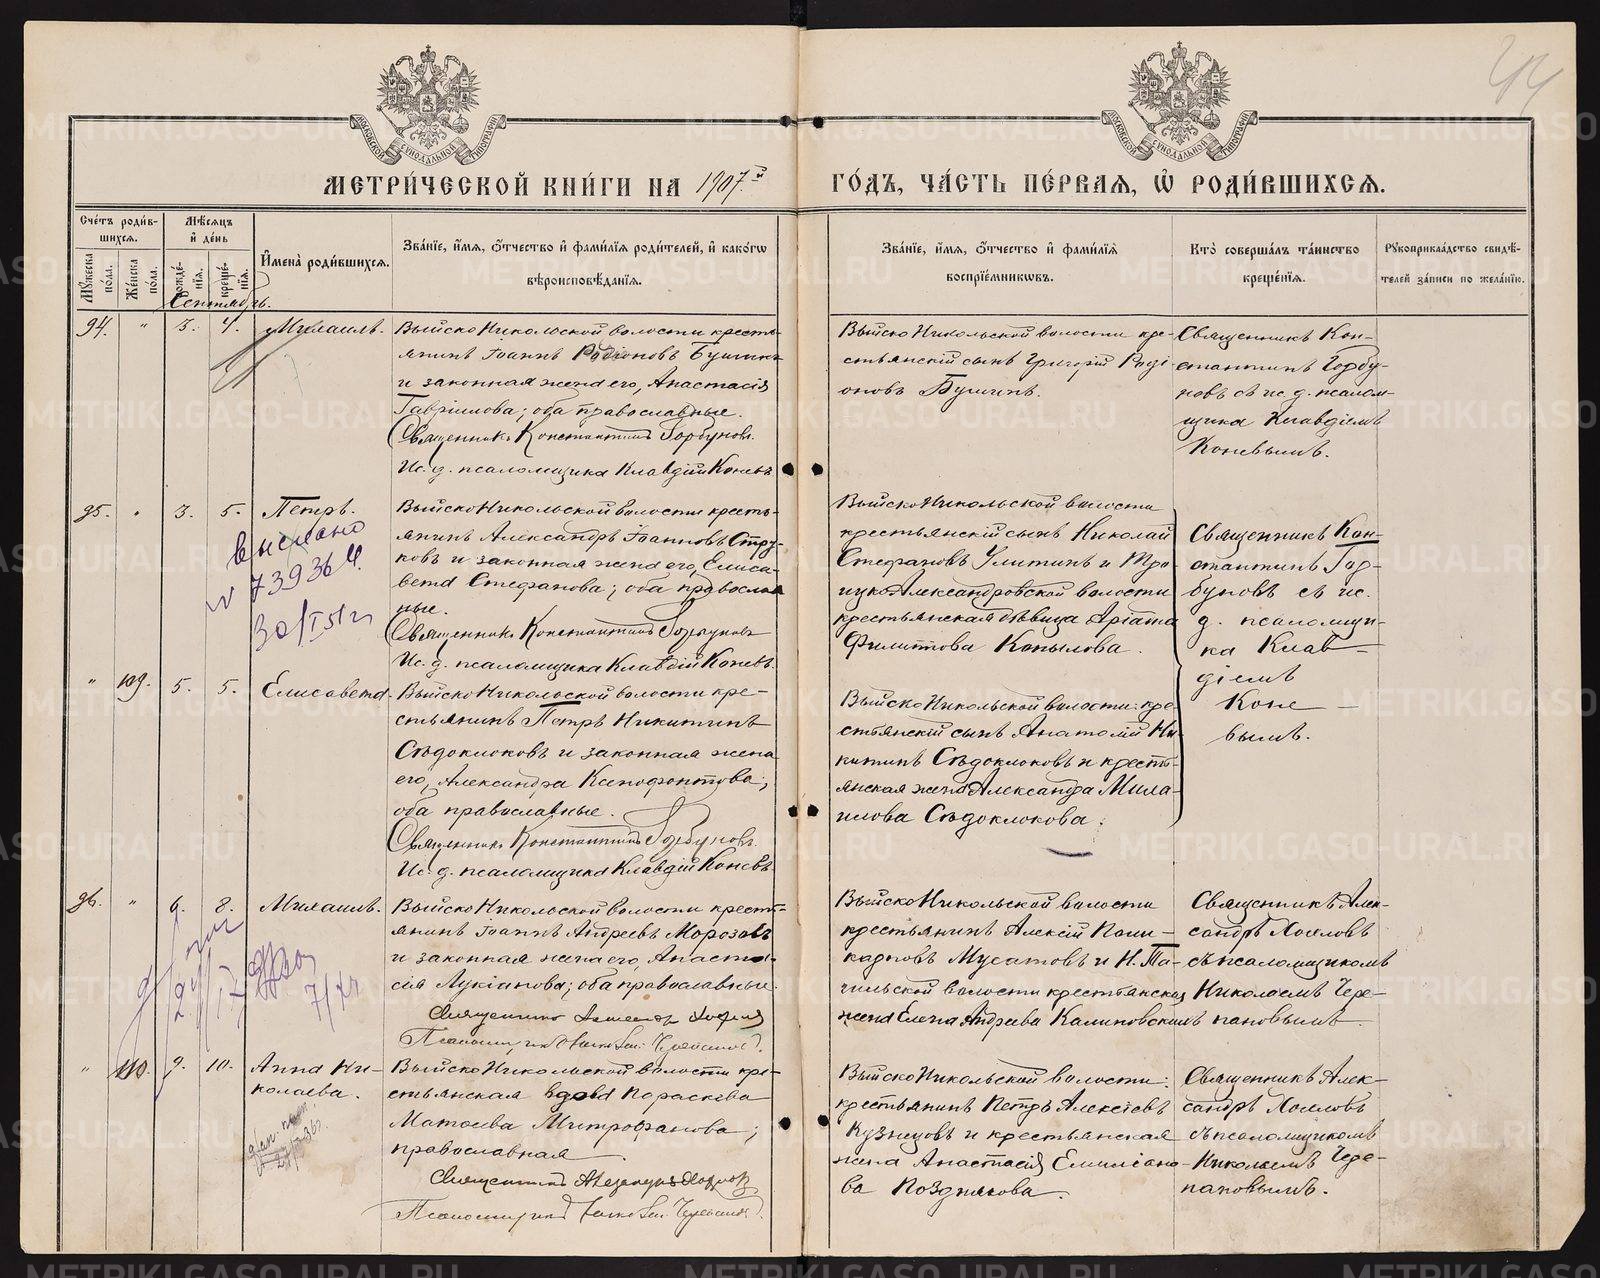 44
МОСКОВСКОЙ СѴНОДАЛЬНОЙ ТИПОГРАФІИ
МОСКОВСКОЙ СѴНОДАЛЬНОЙ ТИПОГРАФІИ
МЕТРИ́ЧЕСКОЙ КНИ́ГИ НА 1907 й
ГО́ДЪ, ЧА́СТЬ ПЕ́РВАЯ, Ѡ҆ РОДИ́ВШИХСЯ.
Сче́тъ роди́в-
шихся.
Мѣ́сяцъ
и҆ де́нь
Мꙋ́жеска по́ла.
Же́нска по́ла.
рожде́-
нїя.
креще́-
нїя.
И҆мена̀ роди́вшихся.
Зва́нїе, и҆́мя, ѻ҆́тчество и҆ фами́лїя роди́телей, и҆ како́гѡ
вѣроисповѣ́данїя.
Зва́нїе, и҆́мя, ѻ҆́тчество и҆ фами́лїя
воспрїе́мникѡвъ.
Кто̀ соверша́лъ та́инство
креще́нїя.
Рꙋкоприкла́дство свидѣ́-
телей за́писи по жела́нїю.
Сентябрь.
94. " 3. 4. Михаилъ.
Выйско Никольской волости кресть-
янинъ Іоаннъ Родіоновъ Бушинъ
и законная жена его, Анастасія
Гавріилова; оба православные.
Священникъ Константинъ Горбуновъ.
Ис. д. псаломщика Клавдій Коневъ
Выйско Никольской волости кре-
стьянскій сынъ Григорій Роді-
оновъ Бушинъ.
Священникъ Кон-
стантинъ Горбу-
новъ съ ис. д. псалом-
щика Клавдіемъ
Коневымъ.
95. " 3. 5. Петръ.
выслано
739364
30/I 51 г
Выйско Никольской волости кресть-
янинъ Александръ Іоанновъ Стру-
ковъ и законная жена его, Елиса-
вета Стефанова; оба православ
ные.
Священникъ Константинъ Горбуновъ
Ис. д. псаломщика Клавдій Коневъ.
Выйско Никольской волости
крестьянскій сынъ Николай
Стефановъ Улитинъ и Тро-
ицко-Александровской волости
крестьянская дѣвица
Филиппова Копылова.
Священникъ Кон-
стантинъ Гор-
буновъ съ ис.
д. псаломщи-
ка Клав-
діемъ
Коне-
вымъ.
" 109. 5. 5. Елисавета.
Выйско Никольской волости кре-
стьянинъ Петръ Никитинъ
Сѣдоклоковъ и законная жена
его, Александра Ксенофонтова;
оба православные.
Священникъ Константинъ Горбуновъ.
Ис. д. псаломщика Клавдій Коневъ
Выйско Никольской волости: кре-
стьянскій сынъ Анатолій Ни-
китинъ Сѣдоклоковъ и кресть-
янская жена Александра Миха-
илова Сѣдоклокова.
96. " 6. 8. Михаилъ.
Выйско Никольской волости кресть-
янинъ Іоаннъ Андреевъ Морозовъ
и законная жена его, Анаста-
сія Лукіанова; оба православные.
Священникъ Александръ Хохловъ
Псаломщикъ Николай Черепановъ.
Выйско Никольской волости
крестьянинъ Алексій Поли-
карповъ Мусатовъ и Н. Та-
гильской волости крестьянская
жена Елена Андреева Калиновская
Священникъ Алек-
сандръ Хохловъ
съ псаломщикомъ
Николаемъ Чере-
пановымъ.
" 110. 9. 10. Анна Ни-
колаева.
Выйско Никольской волости кре-
стьянская вдова Параскева
Матѳіева Митрофанова;
православная.
Священникъ Александръ Хохловъ
Псаломщикъ Николай Черепановъ.
Выйско Никольской волости:
крестьянинъ Петръ Алексѣевъ
Кузнецовъ и крестьянская
жена Анастасія Емиліано-
ва Позднякова.
Священникъ Алек-
сандръ Хохловъ
съ псаломщикомъ
Николаемъ Чере-
пановымъ.
METRIKI.GASO-URAL.RU